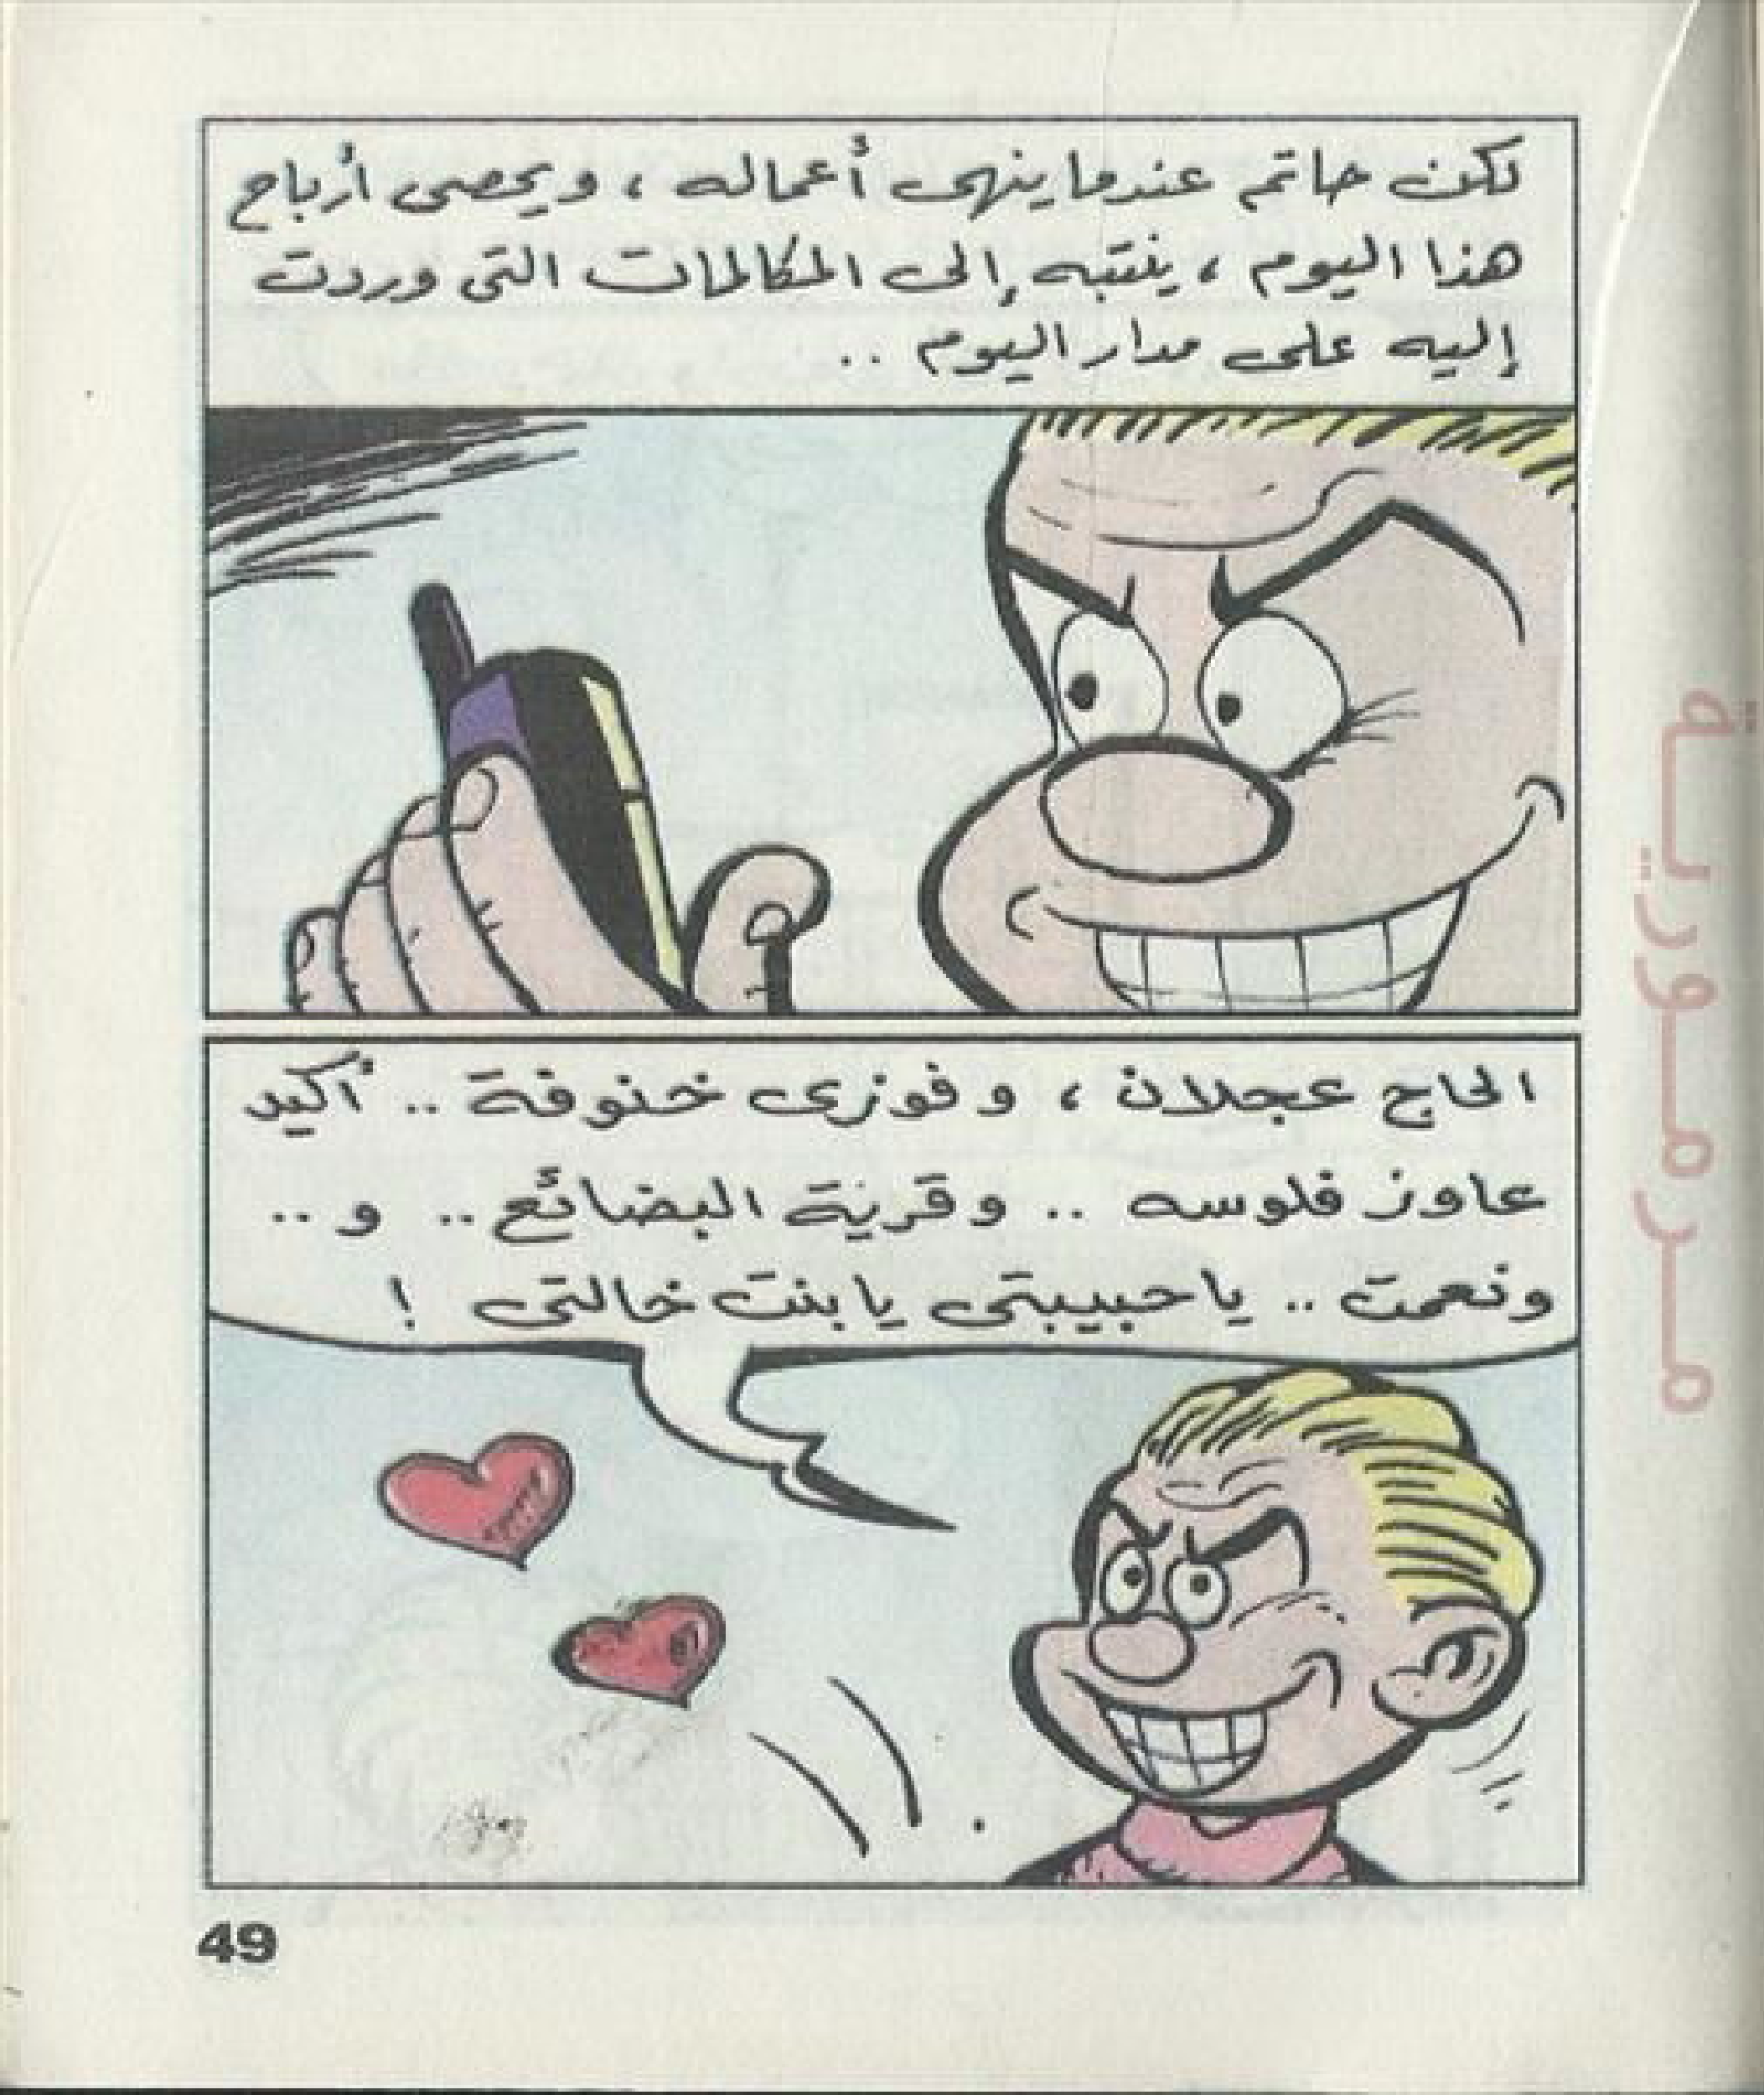 لكن حاتم عندما ينهى أعماله ، ويحصى أرباح
هذا اليوم ، ينتبه إلى المكالمات التى وردت
إليه على مدار اليوم ..
الحاج عجلان ، و فوزى خنوفة .. أكيد
عاوز فلوسه .. و قرية البضائع .. و ..
ونعمت .. ياحبيبتى يا بنت خالتى !
49
مرمورية